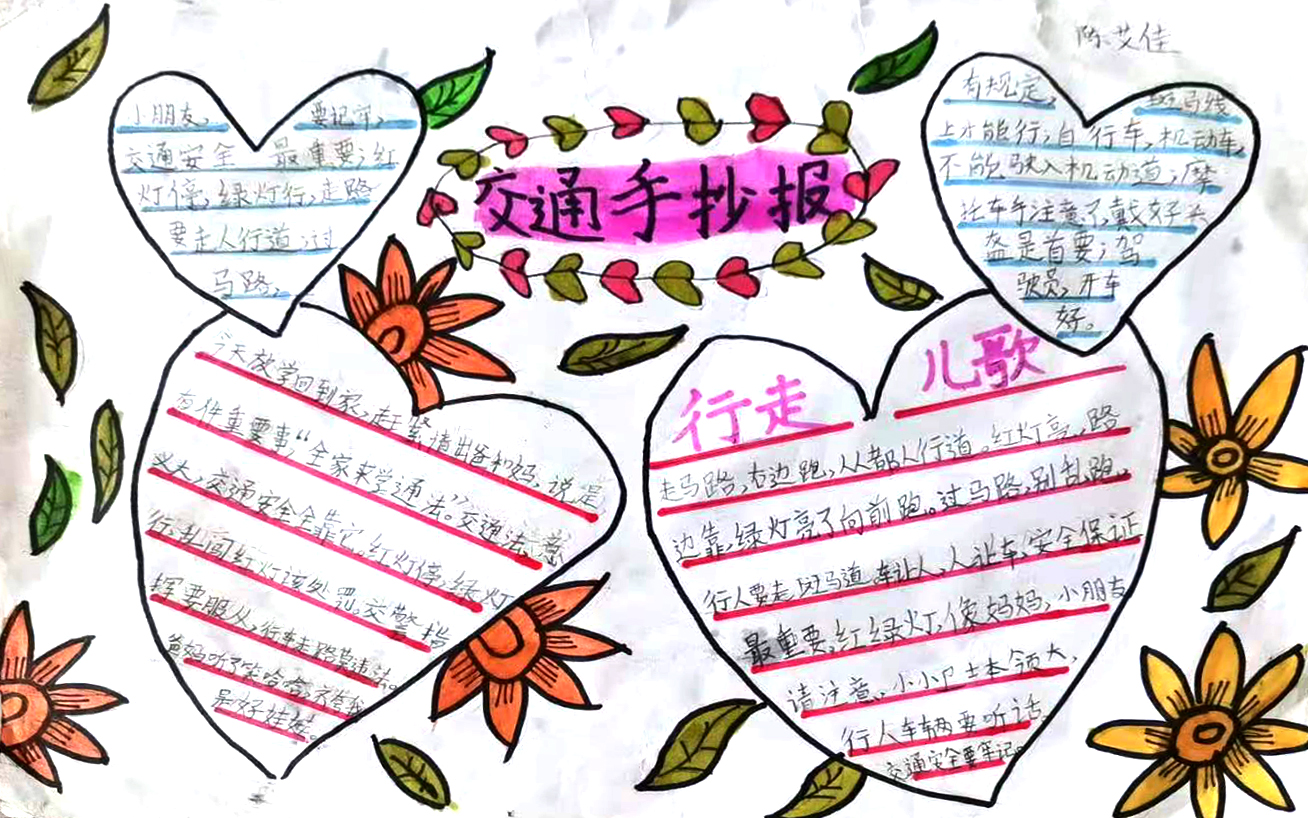 陈艾佳
交通手抄报
小朋友, 要记牢,
交通安全 最重要;红
灯停,绿灯行;走路
要走人行道;过
马路,
有规定, 斑马线
上才能行;自行车,机动车,
不能驶入机动道;摩
托车午注意了,戴好头
盔是首要;驾
驶员,开车
好。
今天放学回到家,赶紧请出爸和妈,说是
有件重要事,“全家来学通法”。交通法,意
义大,交通安全全靠它。红灯停,绿灯
行,乱闯红灯该处罚,交警指
挥要服从,行车走路莫违法。
爸妈听了笑哈哈,齐夸我
是好娃娃。
行走 儿歌
走马路,右边跑,人人都人行道。红灯亮,路
边靠,绿灯亮了向前跑。过马路,别乱跑。
行人要走斑马道,车让人,人让车,安全保证
最重要,红绿灯,像妈妈,小朋友
请注意,小小卫士本领大,
行人车辆要听话。
交通安全要牢记。